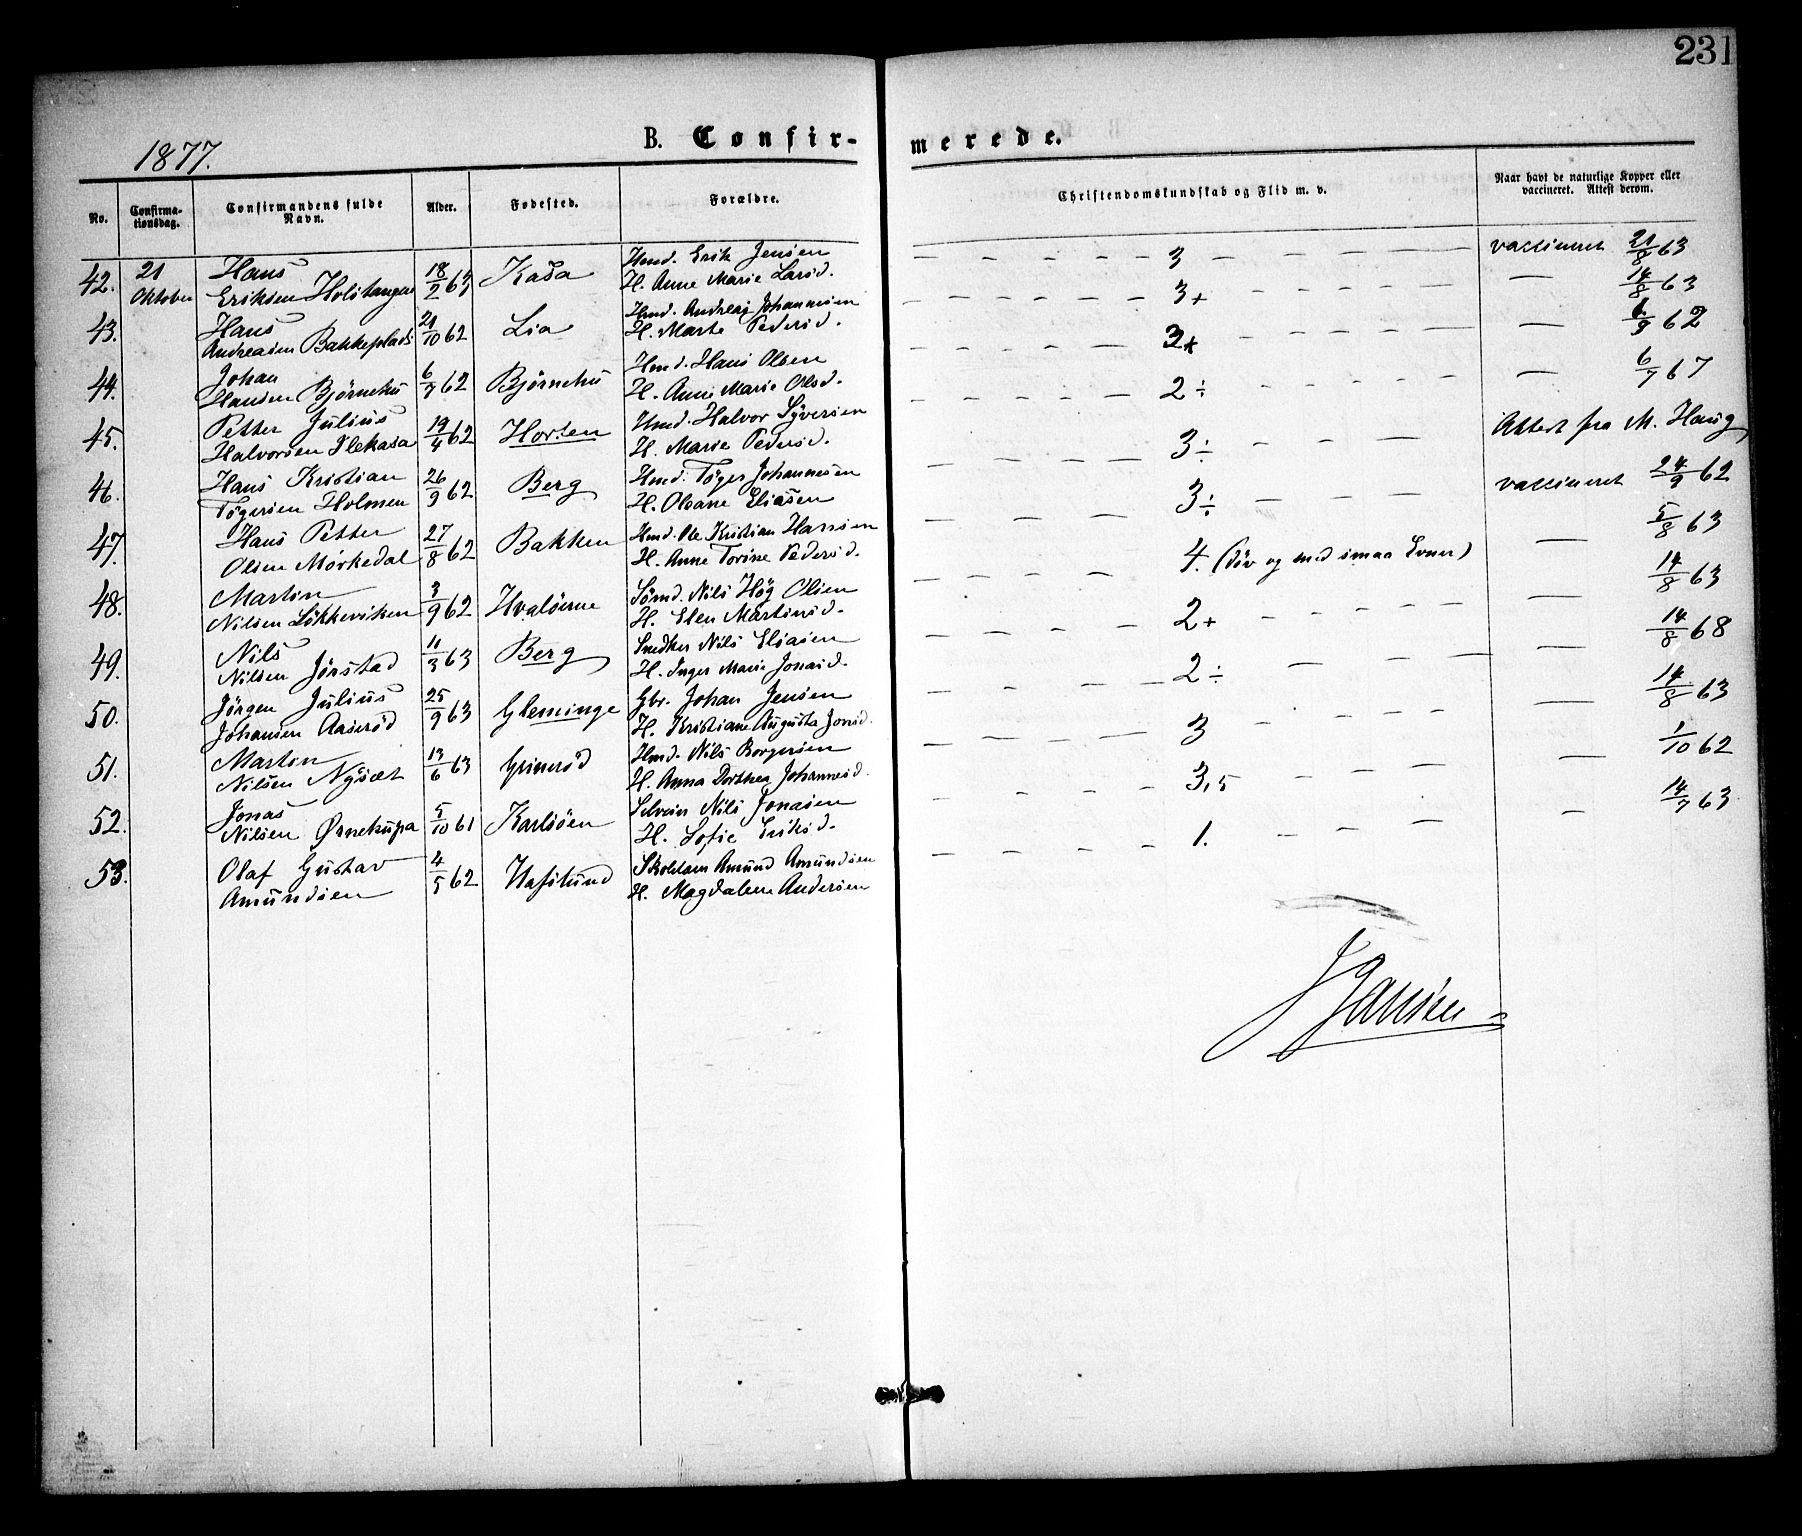 231
1877.
B. Confir-merede.
No.
Confirma-
tionsdag.
Confirmandens fulde
Navn.
Alder.
Fødested.
Forældre.
Christendomskundskab og Flid m. v.
Naar havt de naturlige Kopper eller
vaccineret. Attest derom.
42. 21 Hans 18/2 63 Kasa Hmd. Erik Jensen — 3 — vaccineret 21/8 63
Oktober Eriksen Holstangen H. Anne Marie Larsd.
43. Hans 21/10 62 Lia Hmd. Andreas Johannesen — 3+ — 14/8 63
Andreasen Bakkeplads H. Marte Pedersd.
44. Johan 6/7 62 Bjørnehu Hmd. Hans Olsen — 2+ — 6/9 62
Hansen Bjørnehu H. Anne Marie Olsd.
45. Petter Julius 19/4 62 Horten Hmd. Halvor Syversen — 2÷ — 6/7 67
Halvorsen Flekasa H. Marie Pedersd.
46. Hans Kristian 26/9 62 Berg Hmd. Töger Johannesen — 3÷ — Attest fra M. Haug
Tögersen Holmen H. Oleane Eliasen
47. Hans Petter 27/8 62 Bakken Hmd. Ole Kristian Hansen — 3÷ — vaccineret 24/9 62
Olsen Mørkedal H. Anne Torine Pedersd.
48. Martin 3/9 62 Hvaløerne Sömd. Nils Hög Olsen — 4. (döv og med smaa Evner) — 5/8 63
Nilsen Lökkeviken H. Elen Martinsd.
49. Nils 11/3 63 Berg Snedker Nils Eliasen — 2+ — 14/8 63
Nilsen Jørstad H. Inger Marie Jonasd.
50. Jörgen Julius 25/9 63 Glemminge Gbr. Johan Jensen — 2÷ — 14/8 68
Johansen Aaseröd H. Kristiane Augusta Jonsd.
51. Martin 13/6 63 Grimsröd Hmd. Nils Borgersen — 3 — 14/8 63
Nilsen Nysæt H. Anna Dorthea Johannesd.
52. Jonas 5/10 61 Karlsöen Selveier Nils Jonasen — 3,5 — 1/10 62
Nilsen Ørnekupa H. Sofie Eriksd.
53. Olaf Gustav 4/5 62 Hafslund Skoletam Amund Amundsen — 1. — 14/7 63
Amundsen H. Magdalene Andersen
J Jansen